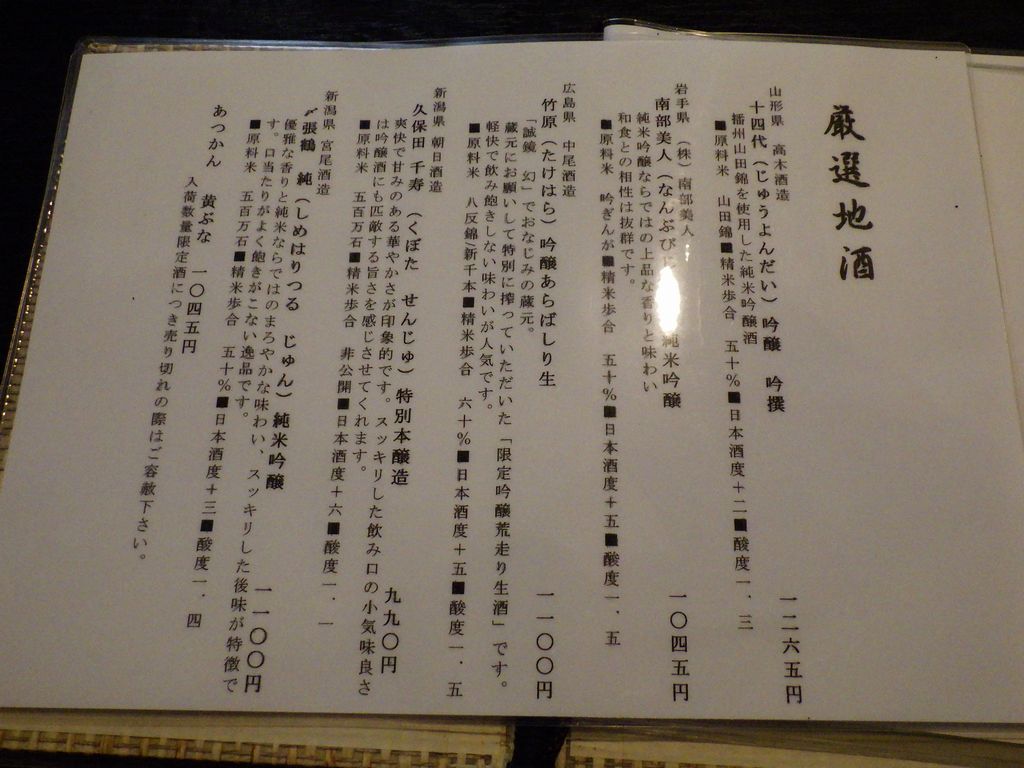 厳選地酒
山形県 高木酒造
十四代（じゅうよんだい）吟醸 吟撰 一二六五円
播州山田錦を使用した純米吟醸酒
■原料米 山田錦■精米歩合 五十％■日本酒度＋二■酸度一．三
岩手県 （株）南部美人
南部美人（なんぶび 純米吟醸 一〇四五円
純米吟醸ならではの上品な香りと味わい
和食との相性は抜群です。
■原料米 吟ぎんが■精米歩合 五十％■日本酒度＋五■酸度一．五
広島県 中尾醸造
竹原（たけはら）吟醸あらばしり生 一一〇〇円
「誠鏡 幻」でおなじみの蔵元。
蔵元にお願いして特別に搾っていただいた「限定吟醸荒走り生酒」です。
軽快で飲み飽きしない味わいが人気です。
■原料米 八反錦/新千本■精米歩合 六十％■日本酒度＋五■酸度一．五
新潟県 朝日酒造
久保田 千寿 （くぼた せんじゅ）特別本醸造 九九〇円
爽快で甘みのある華やかさが印象的です。スッキリした飲み口の小気味良さ
は吟醸酒にも匹敵する旨さを感じさせてくれます。
■原料米 五百万石■精米歩合 非公開■日本酒度＋六■酸度一．一
新潟県 宮尾酒造
〆張鶴 純（しめはりつる じゅん）純米吟醸 一一〇〇円
優雅な香りと純米ならではのまろやかな味わい、スッキリした後味が特徴で
す。口当たりがよく飽きがこない逸品です。
■原料米 五百万石■精米歩合 五十％■日本酒度＋三■酸度一．四
あつかん 黄ぶな 一〇四五円
入荷数量限定酒につき売り切れの際はご容赦下さい。